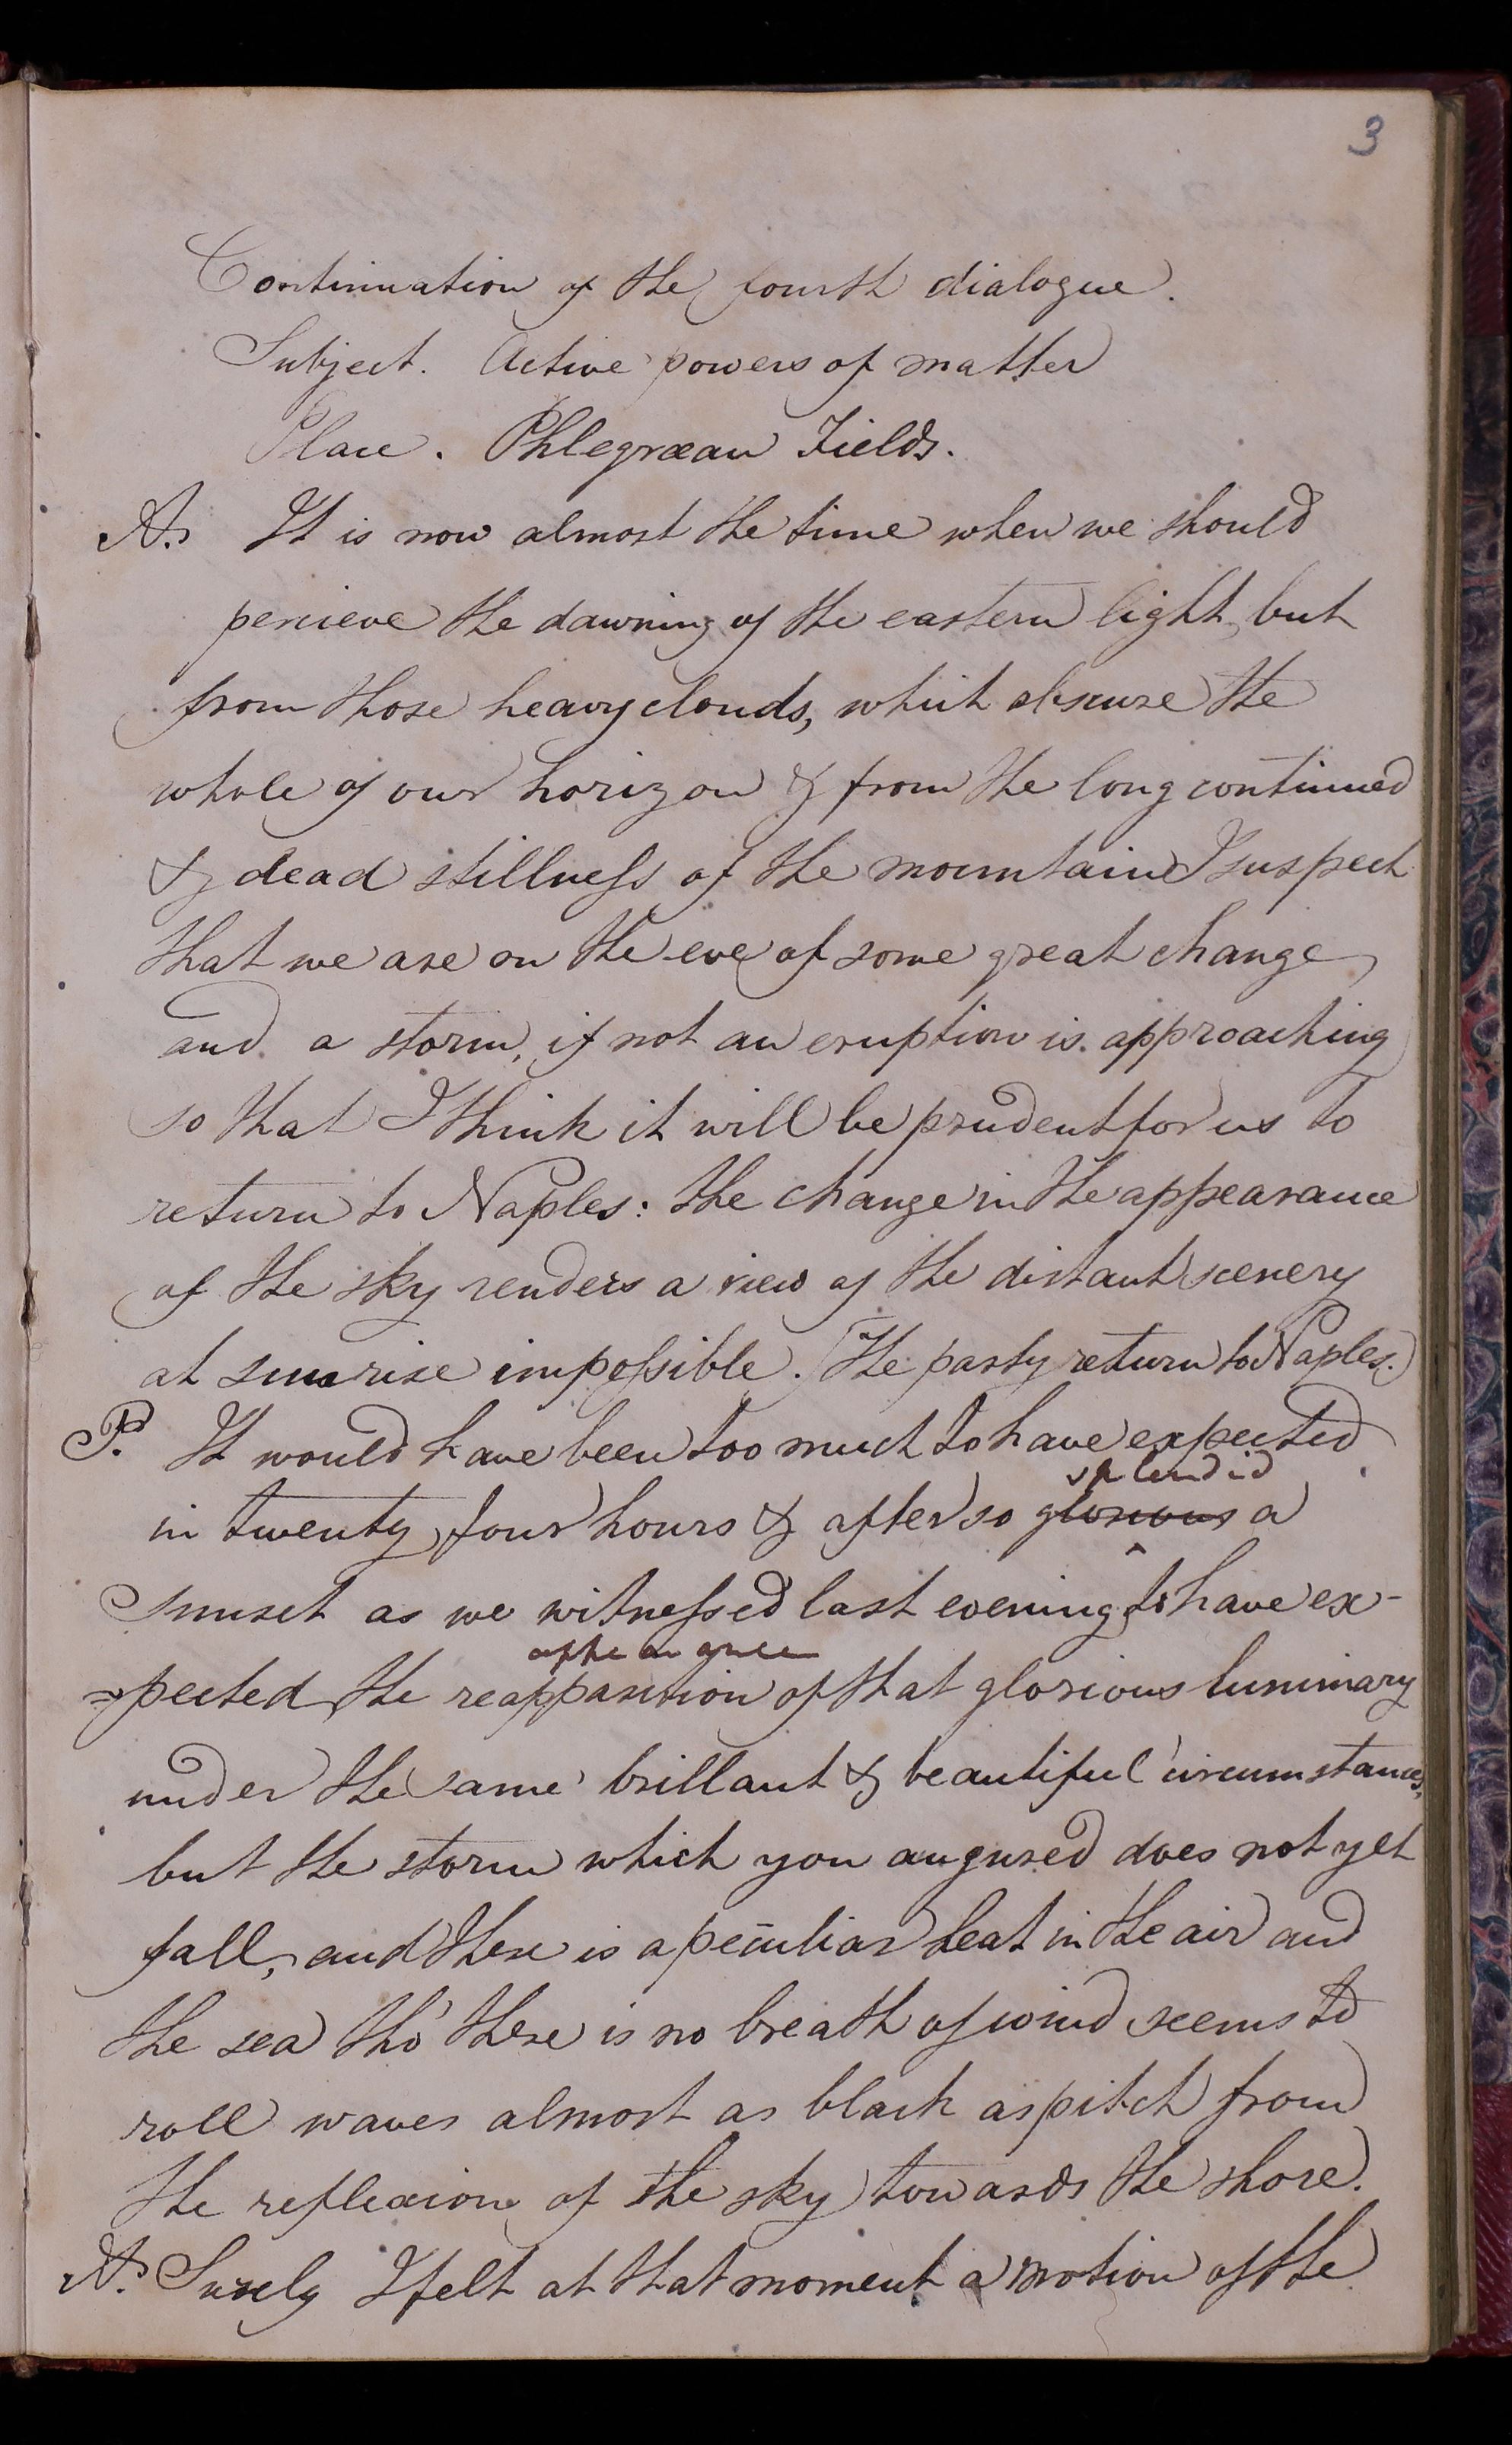 3
Continuation of the fourth dialogue.
Subject. Active powers of matter
Place. Phlegræan Fields.
A. It is now almost the time when we should
percieve the dawning of the eastern light, but
from those heavy clouds, which obscure the
whole of our horizon & from the long continued
& dead stillness of the mountain I suspect
that we are on the eve of some great change
and a storm, if not an eruption is approaching
so that I think it will be prudent for us to
return to Naples: the change in the appearance
of the sky renders a view of the distant scenery
at sunrise impossible. (The party return to Naples.)
P. It would have been too much to have expected
splendid
in twenty four hours & after so glorious a
sunset as we witnessed last evening to have ex-
appearance
=pected the reapparition of that glorious luminary
under the same brillant & beautiful circumstances,
but the storm which you augured does not yet
fall, and there is a peculiar heat in the air and
the sea tho' there is no breath of wind seems to
roll waves almost as black as pitch from
the reflexion of the sky towards the shore.
A. Surely I felt at that moment a motion of the